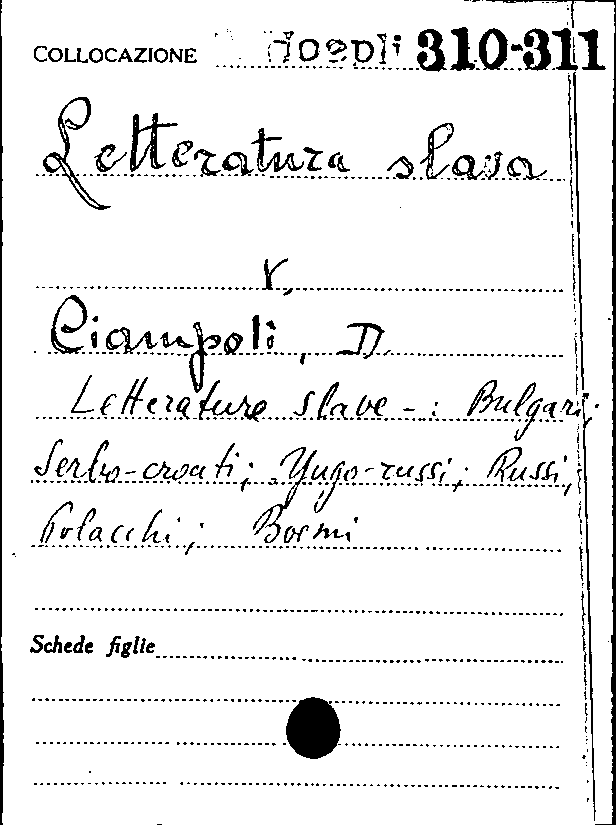 COLLOCAZIONE Hoepli 310-311
Letteratura slava
V.
Ciampoli, D.
Letterature slave - : Bulgari;
Serbo-croati; Yugo-russi; Russi;
Polacchi; Boemi
Schede figlie